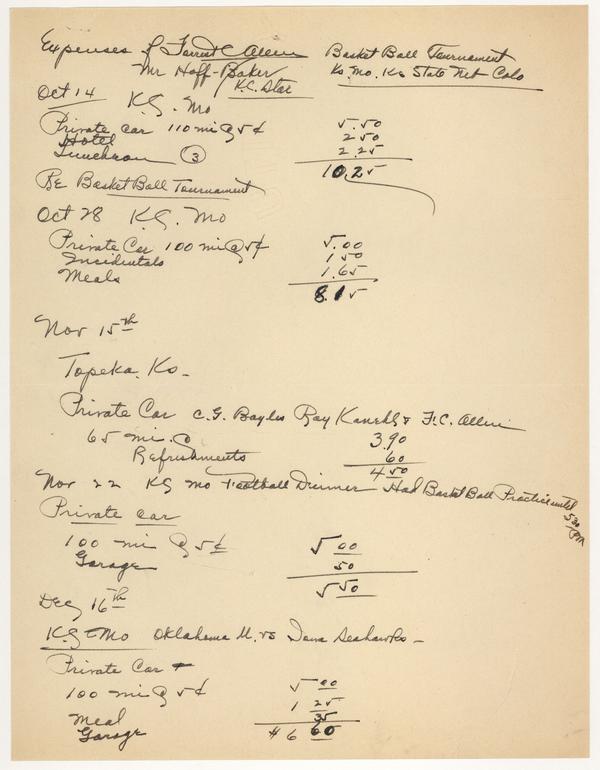 Expenses of Forrest C Allen Basket Ball Tournament
Mr Hoff-Baker Ks. Mo. Ks State Neb Colo
K.C. Star
Oct 14 K.C. Mo
Private car 110 mi @ 5¢ 5.50
Hotel 2 50
Luncheon ③ 2.25
10.25
Re Basket Ball Tournament
Oct 28 K.C. Mo
Private Car 100 mi @ 5¢ 5.00
Incidentals 1 50
Meals 1.65
8.15
Nov 15th
Topeka, Ks-
Private Car C.G. Bayles Ray Kanehl & F.C. Allen
65 mi. @ 3.90
Refreshments 60
4 50
Nov 22 KC Mo Football Dinner Had Basket Ball Practice until 530 PM
Private car
100 mi @ 5¢ 5 00
Garage 50
5 50
Dec 16th
K.C - Mo Oklahoma U. vs Iowa Seahawks -
Private Car
100 mi @ 5¢ 5 00
Meal 1 25
Garage 35
$ 6 60